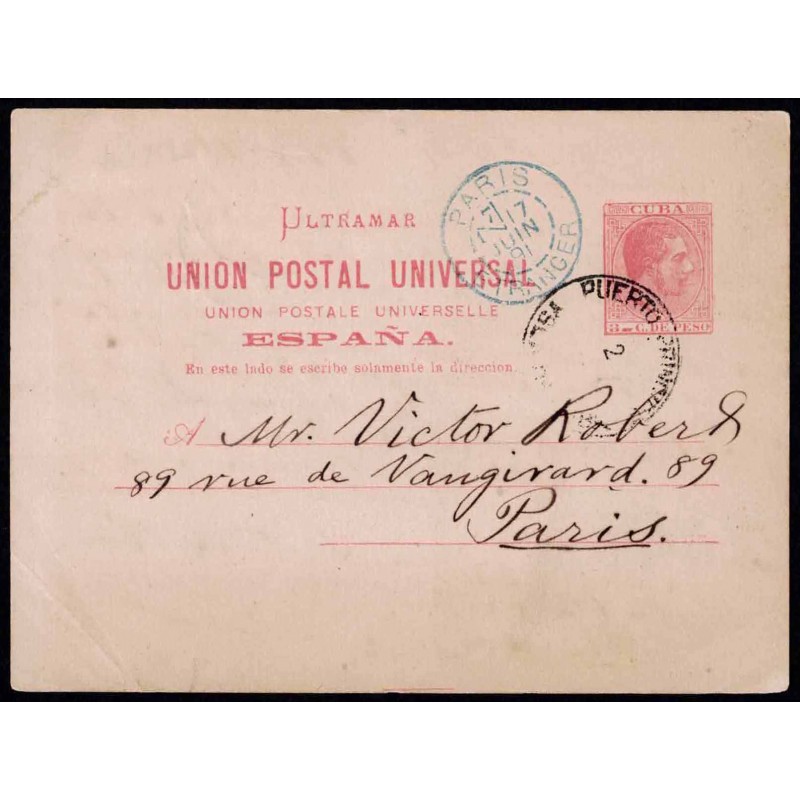 ULTRAMAR
UNION POSTAL UNIVERSAL
UNION POSTALE UNIVERSELLE
ESPAÑA.
En este lado se escribe solamente la direccion.
PARIS
7 17
JUIN
91
ETRANGER
CUBA
3 C. DE PESO
PUERTO
2
A Mr. Victor Robert
89 rue de Vangirard. 89
Paris.